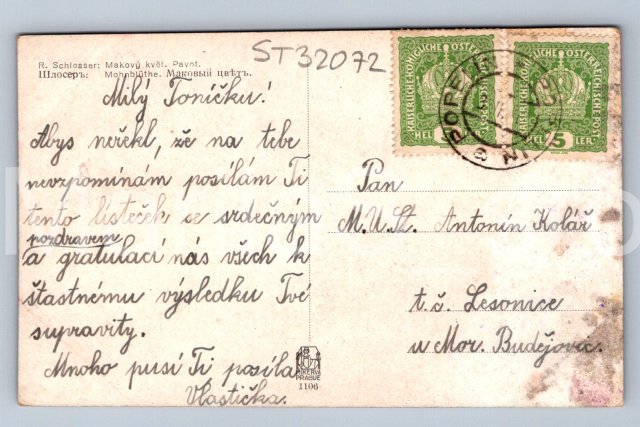 R. Schlosser: Makový květ. Pavot.
Шлосеръ: Mohnblüthe. Маковый цвѣтъ.
ST32072
Milý Toníčku!
Abys neřekl, že na tebe
nevzpomínám posílám Ti
tento lísteček se srdečným
pozdravem
a gratulací nás všech k
šťastnému výsledku Tvé
supravity.
Mnoho pusí Ti posílá
Vlastička.
KAISERLICHE KÖNIGLICHE ÖSTERREICHISCHE POST
5 HELLER
Pan
M.U.St. Antonín Kolář
t.č. Lesonice
u Mor. Budějovic.
PRAGUE
1106